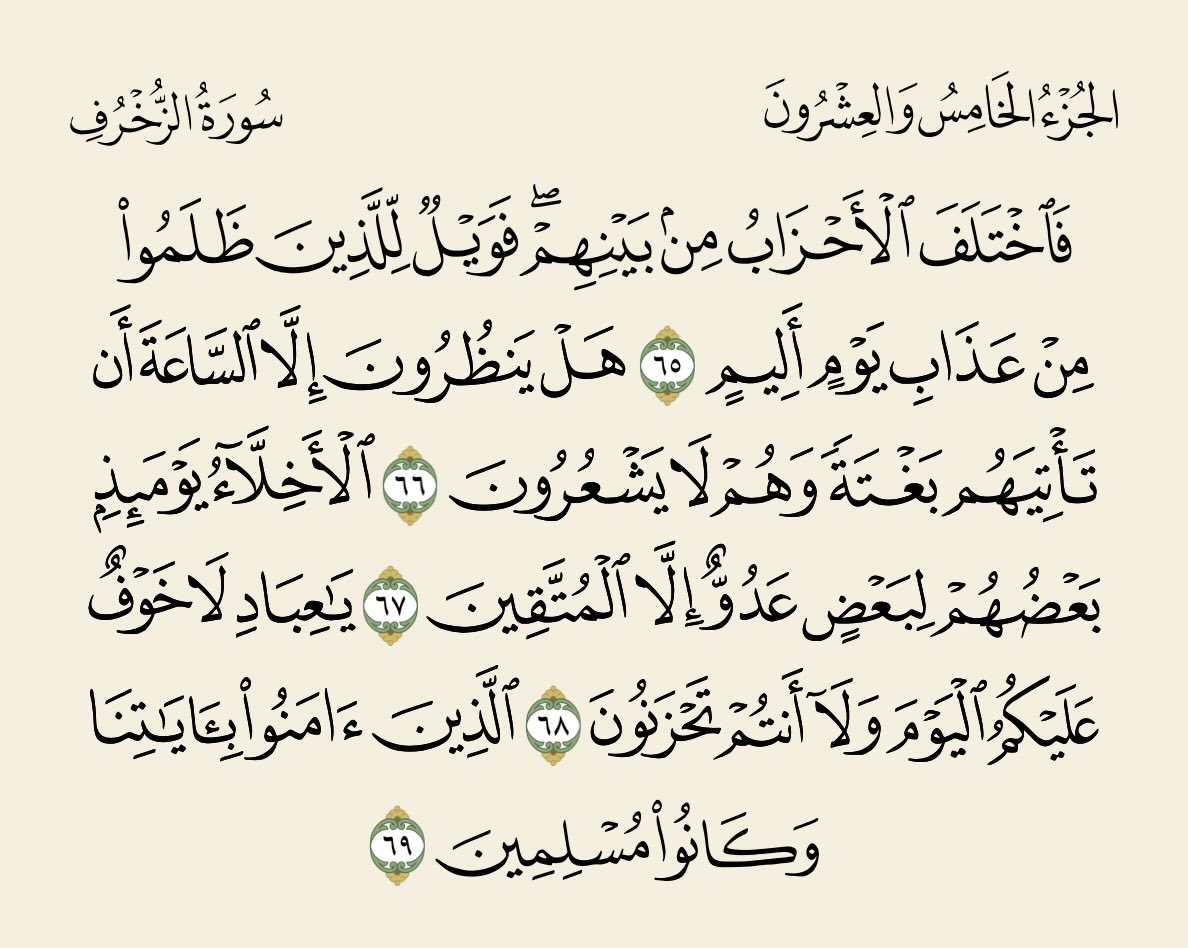 الجُزْءُ الخَامِسُ وَالعِشْرُونَ
سُورَةُ الزُّخْرُفِ
فَٱخْتَلَفَ ٱلْأَحْزَابُ مِنۢ بَيْنِهِمْ ۖ فَوَيْلٌ لِّلَّذِينَ ظَلَمُوا۟
مِنْ عَذَابِ يَوْمٍ أَلِيمٍ ٦٥ هَلْ يَنظُرُونَ إِلَّا ٱلسَّاعَةَ أَن
تَأْتِيَهُم بَغْتَةً وَهُمْ لَا يَشْعُرُونَ ٦٦ ٱلْأَخِلَّآءُ يَوْمَئِذٍۭ
بَعْضُهُمْ لِبَعْضٍ عَدُوٌّ إِلَّا ٱلْمُتَّقِينَ ٦٧ يَـٰعِبَادِ لَا خَوْفٌ
عَلَيْكُمُ ٱلْيَوْمَ وَلَآ أَنتُمْ تَحْزَنُونَ ٦٨ ٱلَّذِينَ ءَامَنُوا۟ بِـَٔايَـٰتِنَا
وَكَانُوا۟ مُسْلِمِينَ ٦٩